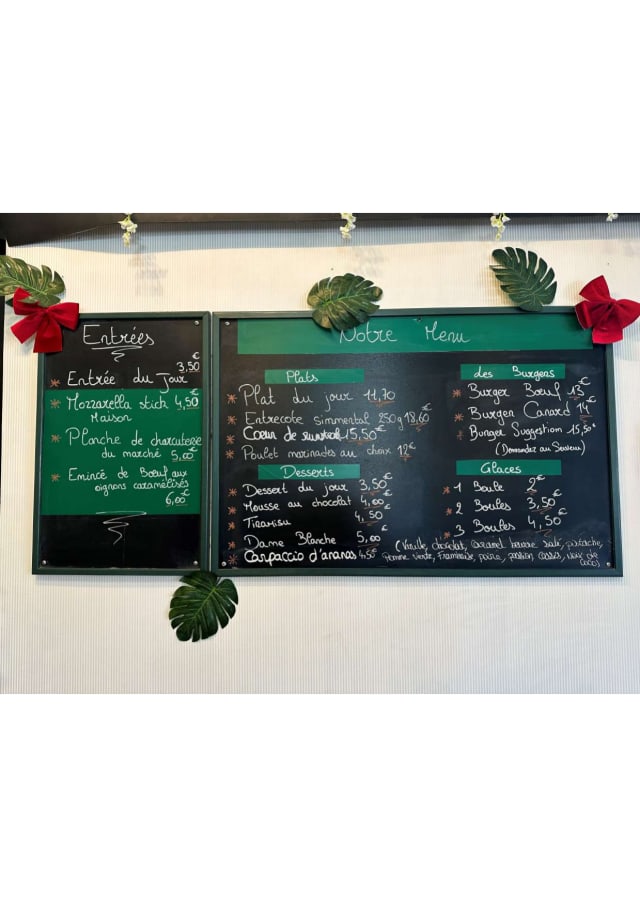 Entrées
Entrée du Jour 3,50€
Mozzarella stick 4,50€
Maison
Planche de charcuterie
du marché 5,00€
Emincé de Bœuf aux
oignons caramélisés
6,00€
Notre Menu
Plats
Plat du jour 11,70
Entrecote simmental 250g 18,60€
Cœur de 15,50€
Poulet marinades au choix 12€
Desserts
Dessert du jour 3,50€
Mousse au chocolat 4,00€
Tiramisu 4,50
Dame Blanche 5,00€
Carpaccio d'ananas 4,50€
des Burgers
Burger Bœuf 13€
Burger Canard 14€
Burger Suggestion 15,50€
(Demandez au Serveur)
Glaces
1 Boule 2€
2 Boules 3,50€
3 Boules 4,50€
(Vanille, chocolat, Caramel beurre salé, pistache,
Pomme verte, Framboise, poire, passion, Cassis, Noix de
Coco)